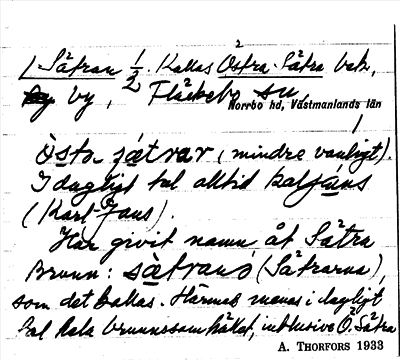 / Sätran 1/2. Kallas Östra Sätra
by, Fläckebo sn,
Norrbo hd, Västmanlands län
Östa sätrar (mindre vanligt).
I dagligt tal alltid kaljans
(Karl-Jans).
Har givit namn åt Sätra
Brunn: sàtranś (Sätrarna),
som det kallas. Härmed menas i dagligt
tal hela brunnssamhället, inklusive Ö. Sätra
A. THORFORS 1933